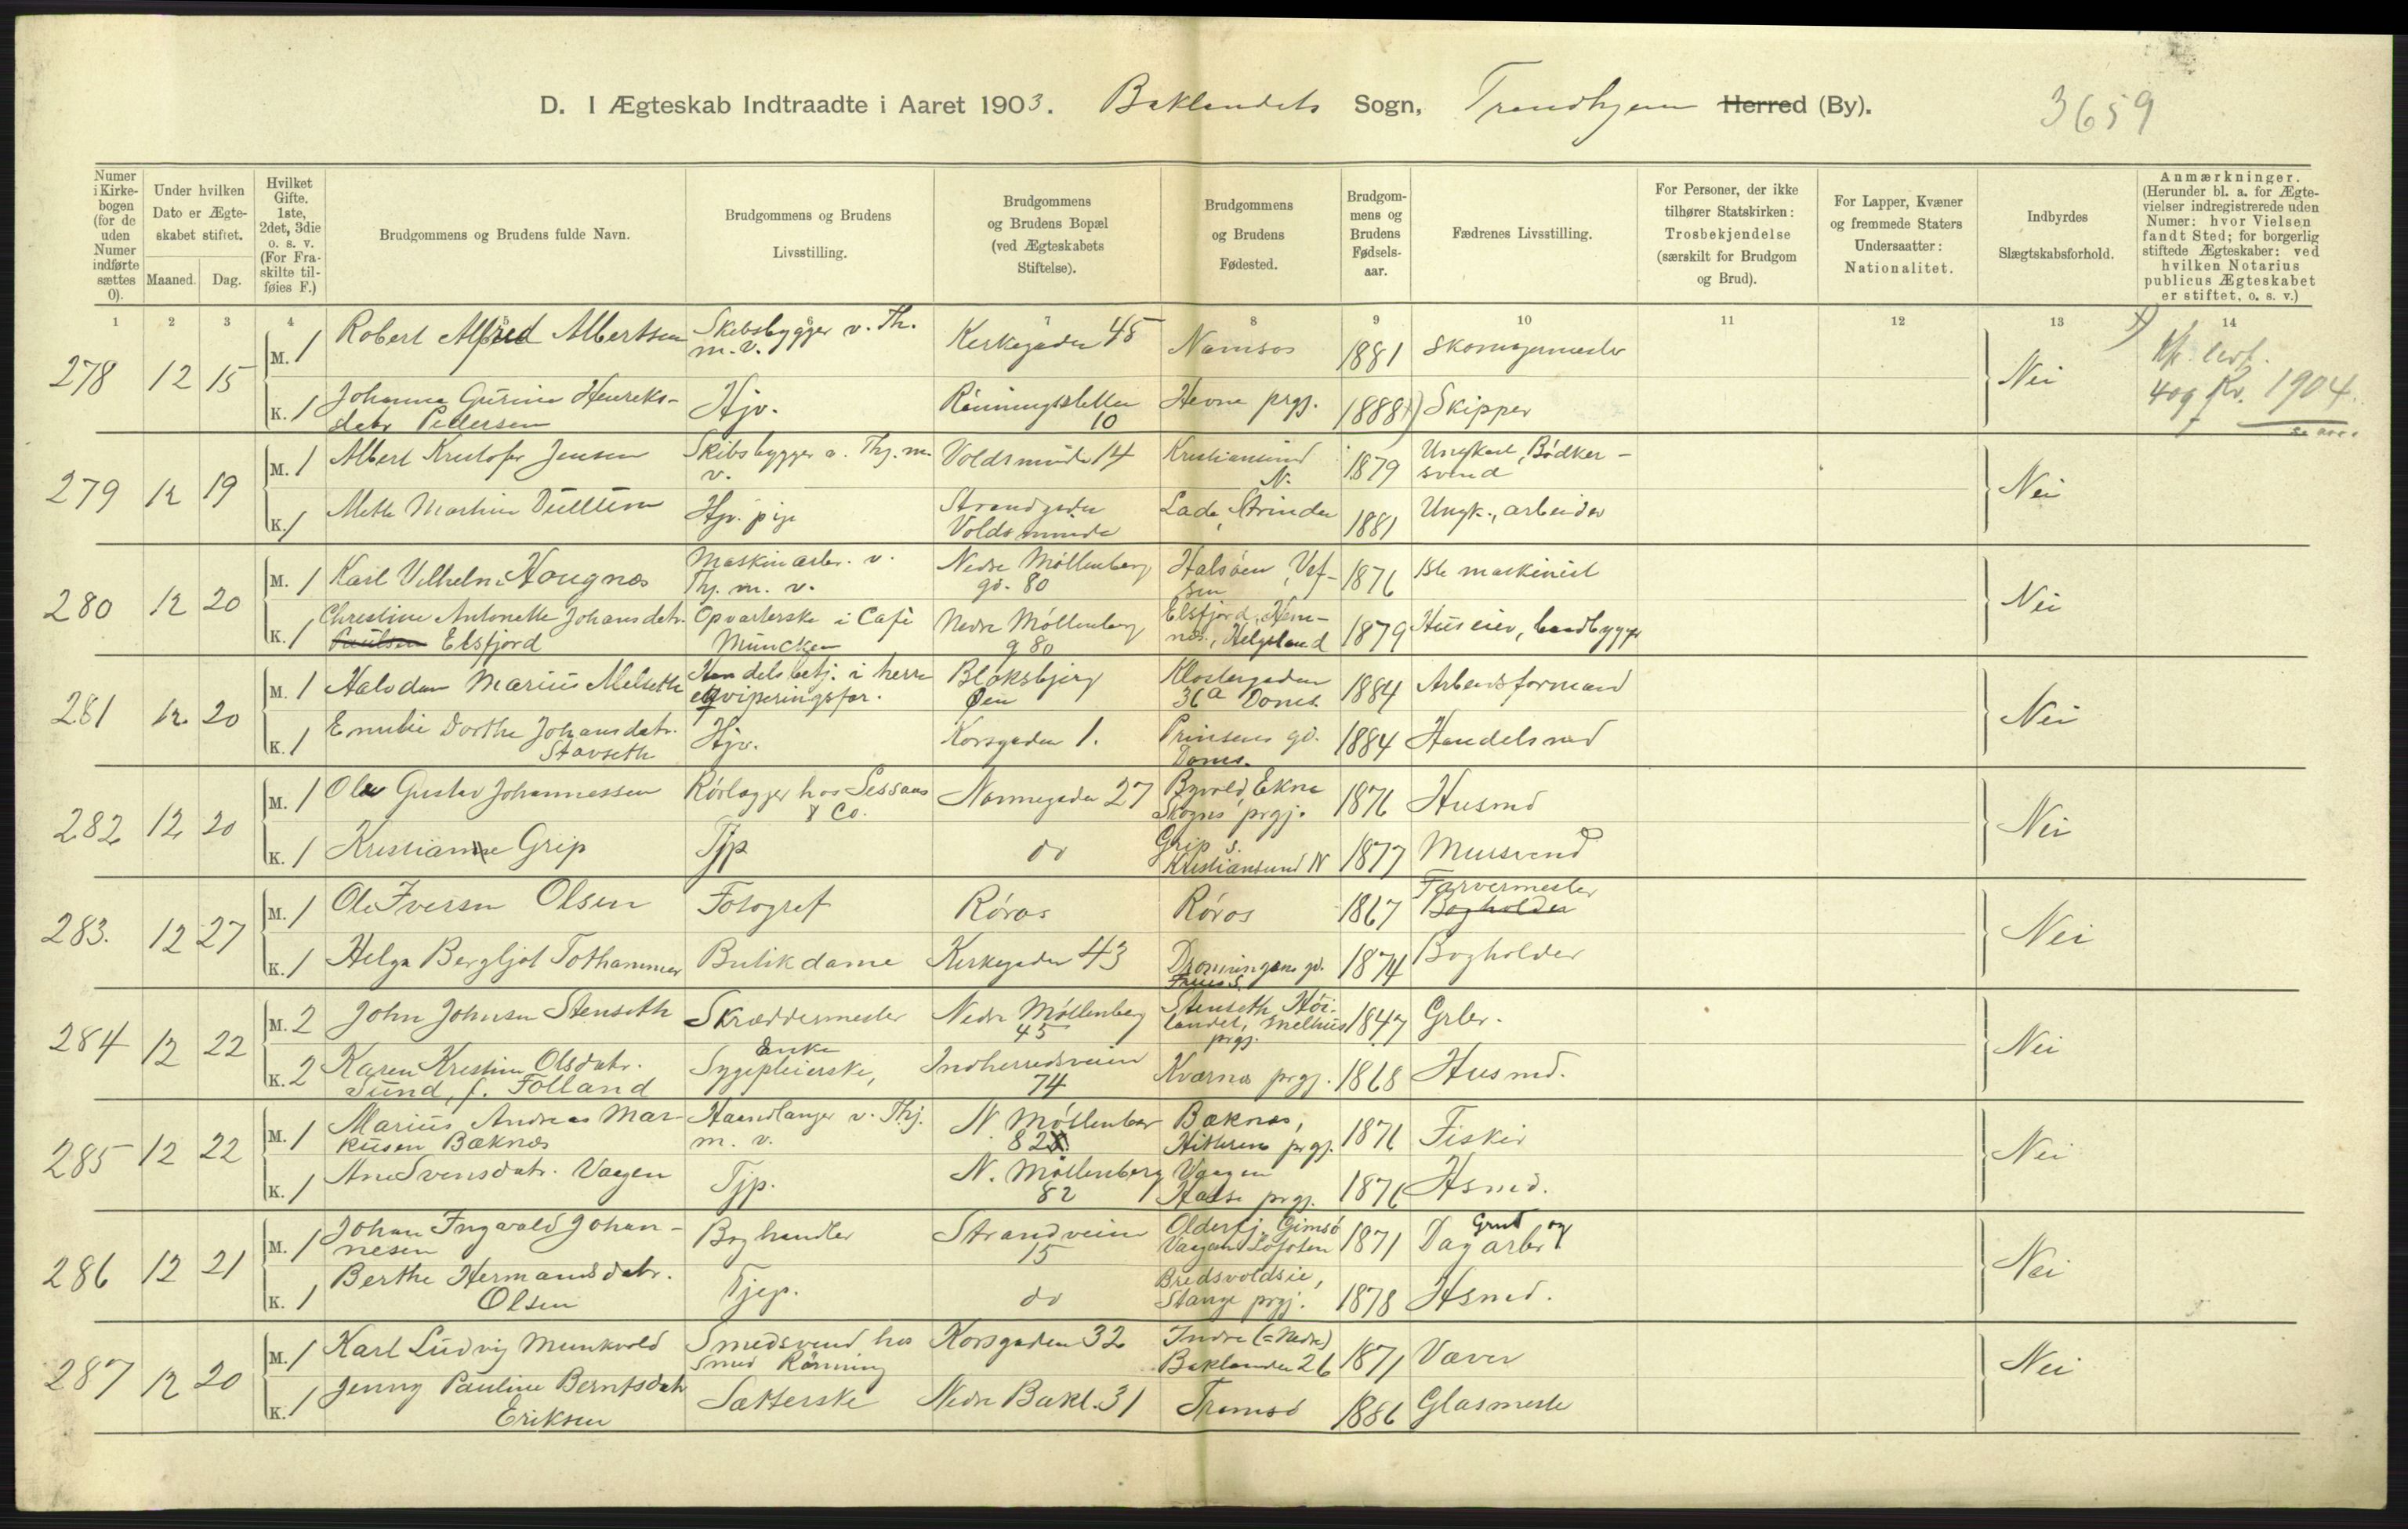 D. I Ægteskab Indtraadte i Aaret 1903. Baklandets Sogn, Trondhjem Herred (By). 3659
Numer i Kirkebogen (for de uden Numer indførte sættes 0).
Under hvilken Dato er Ægteskabet stiftet.
Maaned. Dag.
Hvilket Gifte. 1ste, 2det, 3die o. s. v. (For Fraskilte tilføies F.)
Brudgommens og Brudens fulde Navn.
Brudgommens og Brudens Livsstilling.
Brudgommens og Brudens Bopæl (ved Ægteskabets Stiftelse).
Brudgommens og Brudens Fødested.
Brudgommens og Brudens Fødselsaar.
Fædrenes Livsstilling.
For Personer, der ikke tilhører Statskirken: Trosbekjendelse (særskilt for Brudgom og Brud).
For Lapper, Kvæner og fremmede Staters Undersaatter: Nationalitet.
Indbyrdes Slægtskabsforhold.
Anmærkninger. (Herunder bl. a. for Ægtevielser indregistrerede uden Numer: hvor Vielsen fandt Sted; for borgerlig stiftede Ægteskaber: ved hvilken Notarius publicus Ægteskabet er stiftet, o. s. v.)
1 2 3 4 5 6 7 8 9 10 11 12 13 14
278 12 15 M. 1 Robert Alfred Albertsen Skibsbygger v. Th. m. v. Kirkegaden 45 Namsos 1881 Skomagermester Nei
K. 1 Johanna Gurine Henreksdatr Pedersen Hjv. Rønningsletten 10 Hevne prgj. 1888 Skipper
409 1904
279 12 19 M. 1 Albert Kristofer Jensen Skibsbygger v. Thj. m. v. Voldsminde 14 Kristiansund N. 1879 Ungkarl, Bødkersvend Nei
K. 1 Mette Martine Hjv. pige Strandgaden Voldsminde Lade, Strinden 1881 Ungk., arbeider
280 12 20 M. 1 Karl Vilhelm Haugnæs Maskinarbr. v. Thj. m. v. Nedre Møllenberg gd. 80 Halsøen, Vefsen 1876 1ste maskinist Nei
K. 1 Christine Antonette Johansdatr. Paulsen Elsfjord Opvarterske i Café Müncken Nedre Møllenberg g 80 Elsfjord, Hemnes, Helgeland 1879 Huseier, baadbygger
281 12 20 M. 1 Halvdan Marius Melseth Handelsbetj. i herreeqviperingsfor. Bloksbjerg Øen Klostergaden 36a Doms. 1884 Arbeidsformand Nei
K. 1 Emilie Dorthe Johansdatr. Stavseth Hjv. Korsgaden 1. Prinsens gd. Doms. 1884 Handelsmd
282 12 20 M. 1 Olav Gustav Johannessen Rørlægger hos Sessaas & Co. Nonnegaden 27 Byvold, Ekne Skogns prgj. 1876 Husmd Nei
K. 1 Kristianne Grip Tjp do Grip S. Kristiansund N 1877 Mursvend
283. 12 27 M. 1 Ole Iversen Olsen Fotograf Røros Røros 1867 Farvermester Bogholder Nei
K. 1 Helga Bergljot Tothammer Butikdame Kirkegaden 43 Dronningens gd. Frues S. 1874 Bogholder
284 12 22 M. 2 John Johnsen Stenseth Skræddermester Nedre Møllenberg 45 Stenseth, Høilandet, Melhus prgj. 1847 Grbr. Nei
K. 2 Karen Kristine Olsdatr. Sund, f. Folland Sygepleierske, Enke Indherredsveien 74 Kværnes prgj. 1868 Husmd.
285 12 22 M. 1 Marius Andreas Markusen Bæknæs Haandlanger v. Thj. m. v. N. Møllenber 82 Bæknæs, Hitterens prgj. 1876 Fisker Nei
K. 1 Ane Svensdatr. Vaagen Tjp. N. Møllenberg 82 Vaagen Halse prgj. 1876 Hsmd.
286 12 21 M. 1 Johan Ingvald Johannesen Boghandler Strandveien 15 Olderfj. Gimsø Vaagan Lofoten 1871 Dagarbr Grmd og Nei
K. 1 Berthe Hermansdatr. Olsen Tjep. do Bredsvoldsie, Stange prgj. 1878 Hsmd.
287 12 20 M. 1 Karl Ludvig Munkvold Smedsvend hos Smed Rønning Korsgaden 32 Indre (= Nedre) Baklandet 26 1871 Væver Nei
K. 1 Jenny Pauline Berntsdatr Eriksen Sætterske Nedre Bakl. 31 Tromsø 1886 Glasmester